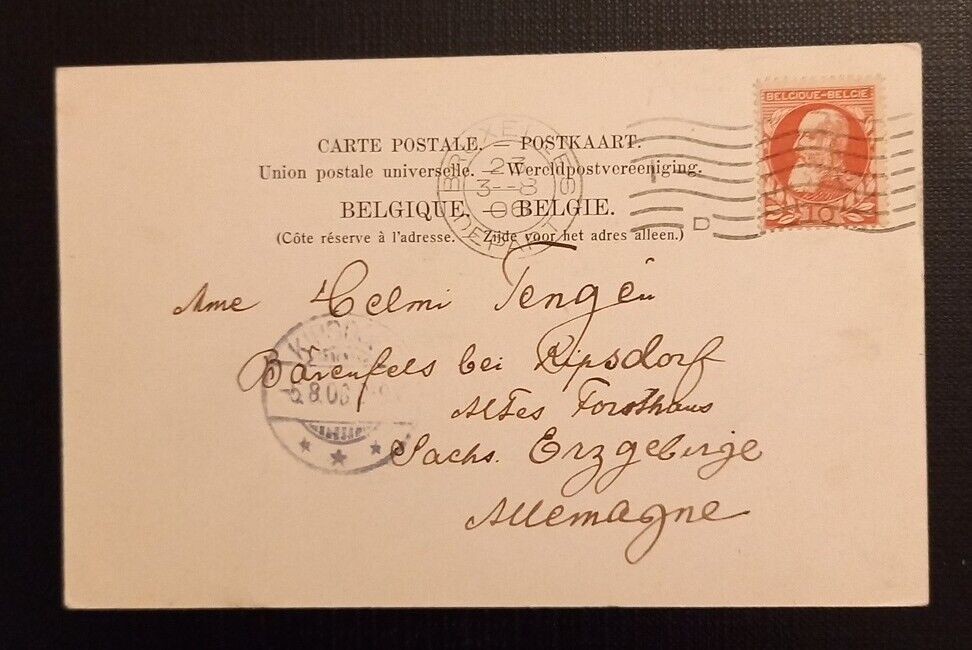 BELGIQUE-BELGIE
10
CARTE POSTALE. — POSTKAART.
Union postale universelle. — Wereldpostvereeniging.
BELGIQUE. — BELGIE.
(Côte réserve à l'adresse. — Zijde voor het adres alleen.)
BRUXELLES
23
3--8
06
DEPART
D
Mme Helmi Tengén
Bärenfels bei Kipsdorf
Altes Forsthaus
Sächs. Erzgebirge
Allemagne
8.06